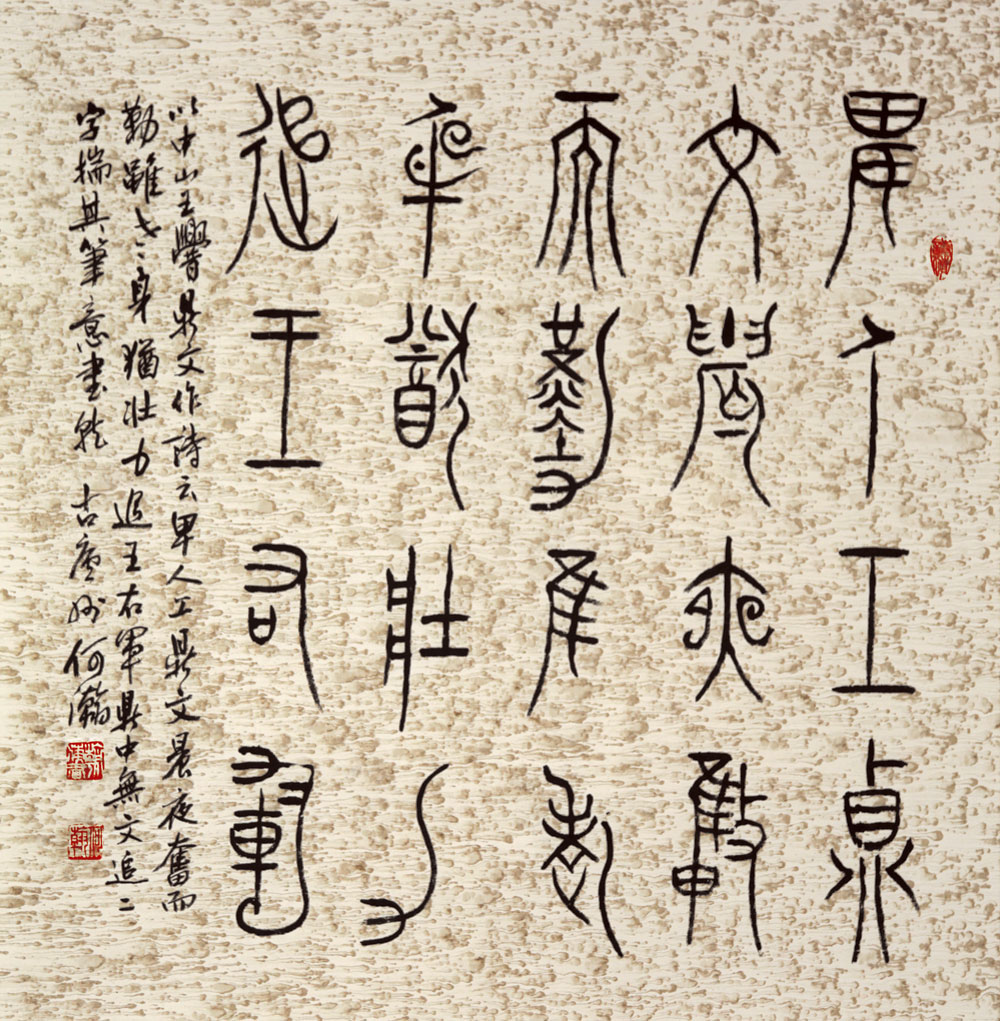 卑人工鼎
文晨夜奮
而勤雖老
身猶壯力
追王右軍
以中山王譻鼎文作詩云卑人工鼎文晨夜奮而
勤雖老身猶壯力追王右軍鼎中無文追二
字揣其筆意書就 古廬州何瀚